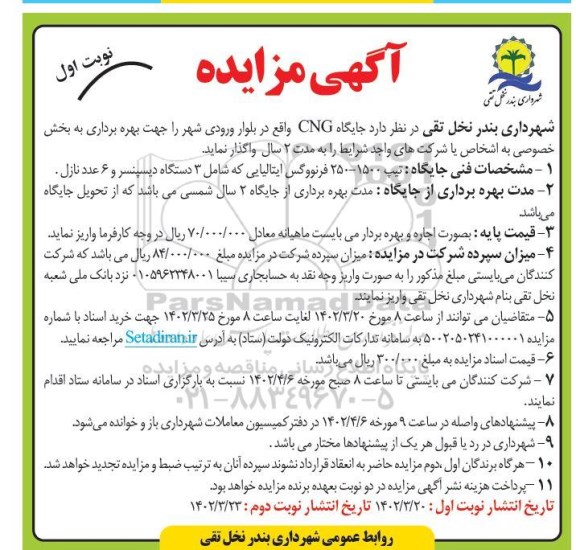 آگهی مزایده
نوبت اول
شهرداری بندر نخل تقی
شهرداری بندر نخل تقی در نظر دارد جایگاه CNG واقع در بلوار ورودی شهر را جهت بهره برداری به بخش
خصوصی به اشخاص یا شرکت های واجد شرایط را به مدت ۲ سال واگذار نماید.
۱- مشخصات فنی جایگاه : تیپ ۱۵۰۰-۲۵۰ فرنووگس ایتالیایی که شامل ۳ دستگاه دیسپنسر و ۶ عدد نازل .
۲- مدت بهره برداری از جایگاه : مدت بهره برداری از جایگاه ۲ سال شمسی می باشد که از تحویل جایگاه
می‌باشد
۳- قیمت پایه : بصورت اجاره و بهره بردار می بایست ماهیانه معادل ۷۰/۰۰۰/۰۰۰ ریال در وجه کارفرما واریز نماید.
۴- میزان سپرده شرکت در مزایده : میزان سپرده شرکت در مزایده مبلغ ۸۴/۰۰۰/۰۰۰ ریال می باشد که شرکت
کنندگان می‌بایستی مبلغ مذکور را به صورت واریز وجه نقد به حسابجاری سیبا ۰۱۰۵۹۶۲۳۴۸۰۰۱ نزد بانک ملی شعبه
نخل تقی بنام شهرداری نخل تقی واریز نمایند.
۵- متقاضیان می توانند از ساعت ۸ مورخ ۱۴۰۲/۳/۲۰ لغایت ساعت ۸ مورخ ۱۴۰۲/۳/۲۵ جهت خرید اسناد با شماره
مزایده ۵۰۰۲۰۵۰۲۴۱۰۰۰۰۰۱ به سامانه تدارکات الکترونیک دولت (ستاد) به آدرس Setadiran.ir مراجعه نمایید.
۶- قیمت اسناد مزایده به مبلغ ۳۰۰/۰۰۰ ریال می‌باشد.
۷ - شرکت کنندگان می بایستی تا ساعت ۸ صبح مورخه ۱۴۰۲/۴/۶ نسبت به بارگزاری اسناد در سامانه ستاد اقدام
نمایند.
۸- پیشنهادهای واصله در ساعت ۹ مورخه ۱۴۰۲/۴/۶ در دفتر کمیسیون معاملات شهرداری باز و خوانده می‌شود.
۹- شهرداری در رد یا قبول هر یک از پیشنهادها مختار می باشد .
۱۰- هرگاه برندگان اول ،دوم مزایده حاضر به انعقاد قرارداد نشوند سپرده آنان به ترتیب ضبط و مزایده تجدید خواهد شد.
۱۱- پرداخت هزینه نشر آگهی مزایده در دو نوبت بعهده برنده مزایده خواهد بود.
تاریخ انتشار نوبت اول : ۱۴۰۲/۳/۲۰ تاریخ انتشار نوبت دوم : ۱۴۰۲/۳/۲۳
روابط عمومی شهرداری بندر نخل تقی
ParsNamadData
پایگاه اطلاع رسانی مناقصه و مزایده
۰۲۱-۸۸۳۴۹۶۷۰-۵